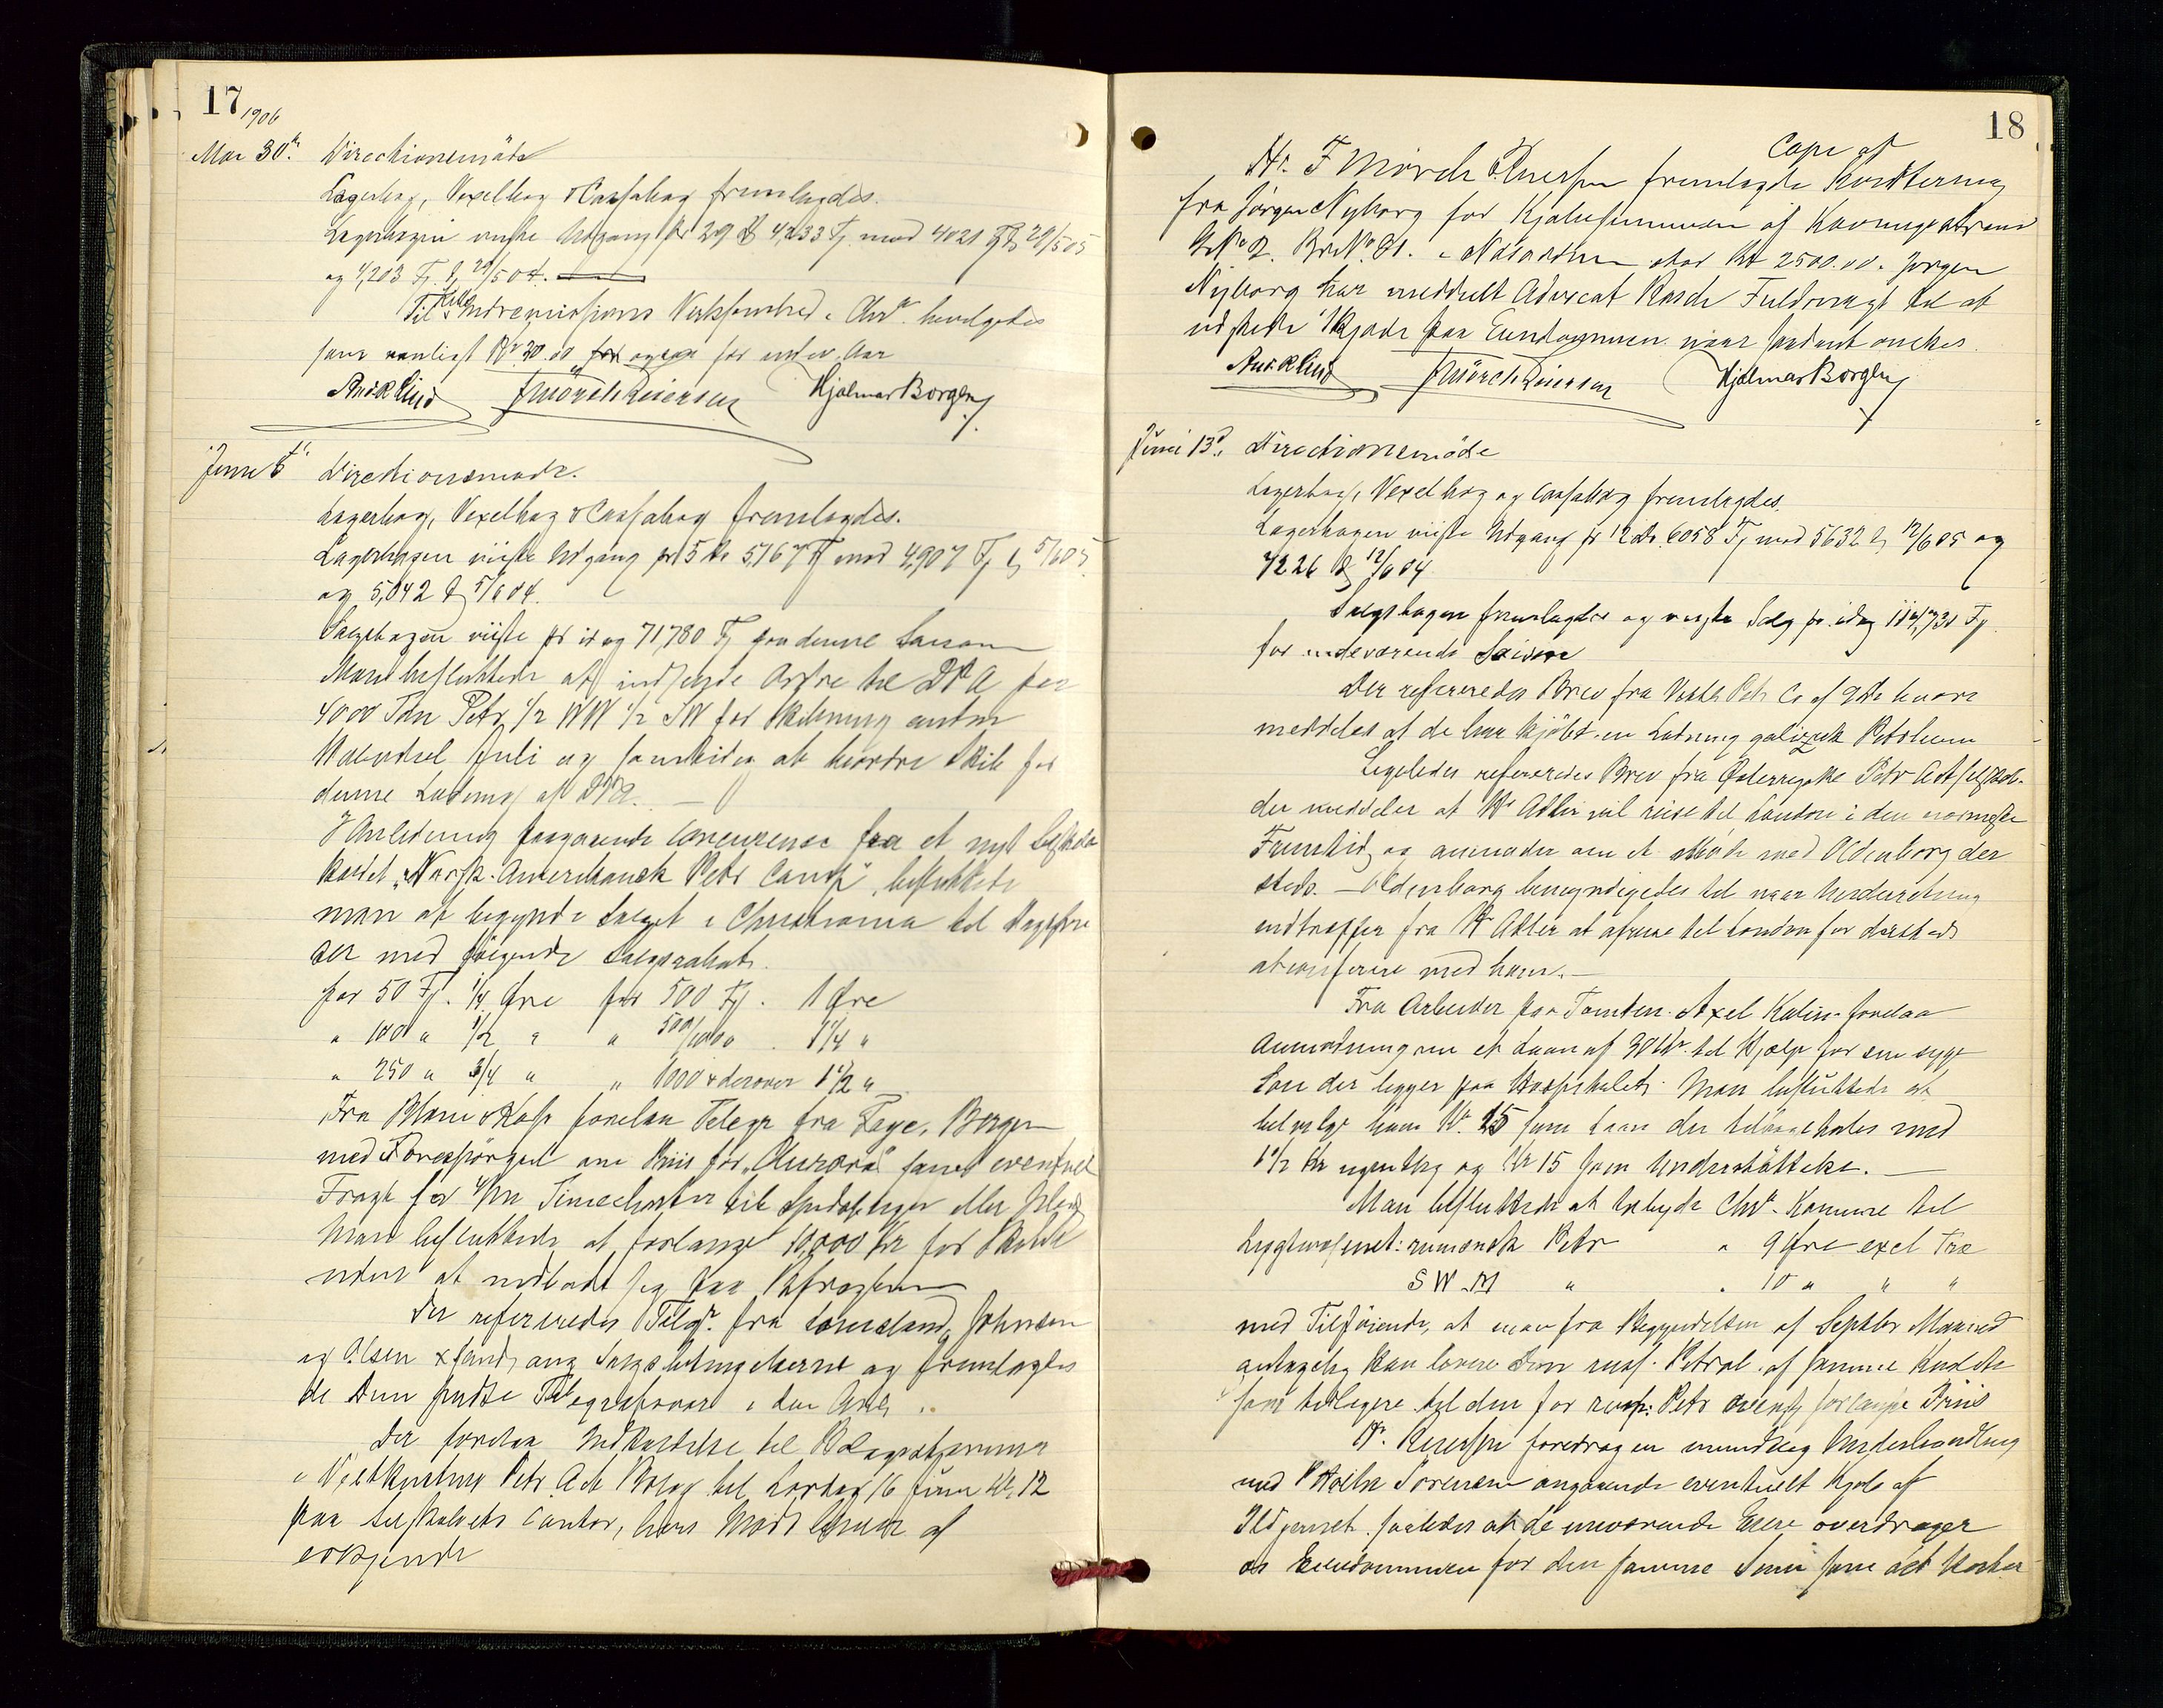 17
1906
Mai 30te Directionsmöde
Lagerbog, Vexelbog & Cassabog fremlagdes.
Lagerbogen viiste Udgang pr 29 ds 4,233 Fj. mod 4021 Fj 29/5 05
og 4,203 Fj. 29/5 04.
Til Indremissions Virksomhed i Chr. bevilgedes
som vanligt Kr 30.00 for
And R Lind FMörch Reiersen Hjalmar Borgen
Juni 6te Directionsmöde.
Lagerbog, Vexelbog & Cassabog fremlagdes.
Lagerbogen viiste Udgang pr 5 ds 5,167 Fj mod 4,907 Fj 5/6 05
og 5,042 5/6 04.
Salgsbogen viiste pr idag 71,780 Fj paa denne Saison
Man besluttede at indsende Ordre til DPA for
4000 Ton Petr. 1/2 WW 1/2 SW for Skibning
Juli og samtidig at beordre Skib for
denne Ladning af DPA.
I Anledning paagaaende Concurrence fra et nyt Selskab
kaldet "Norsk-Amerikansk Petr Comp", besluttede
man at begynde Salget i Christiania til
der med følgende Salgsrabat.
for 50 Fj. 1/4 Øre for 500 Fj. 1 Øre
" 100 " 1/2 " " 500/1000 . 1 1/4 "
" 250 " 3/4 " " 1000 & derover 1 1/2 "
Fra forelaa Telegr fra Faye, Bergen
med Forespörgsel om Priis for "Aurora" samt eventuel
Fragt for Timecharter til Spidsbergen eller
Man besluttede at forlange 10,000 Kr for Skibet
uden at indlade sig paa Befragtning
Der refereredes Telegr. fra Johnsen
og Olsen & Sand, ang Salgsbetingelserne og fremlagdes
de dem sendte Telegrafsvar i den Anl.
Der forelaa Indkaldelse til
i Vestkystens Petr. Act Bolag til Lördag 16 Juni Kl. 12
paa Selskabets Contor,
erkjendt
18
Copi af
Hr. F Mörch Reiersen fremlagde Kvittering
fra Jörgen Nyborg for Kjøbesummen af Kavringstrand
GNo 2. BrNo 21. i stor Kr 2500.00. Jørgen
Nyborg har meddelt Advocat Fuldmagt til at
udstede Skjøde paa Eiendommen naar saadant ønskes.
And R Lind FMörch Reiersen Hjalmar Borgen
Juni 13d. Directionsmöde
Lagerbog, Vexelbog og Cassabog fremlagdes.
Lagerbogen viiste Udgang pr 12 ds. 6058 Fj mod 5632 12/6 05 og
4226 12/6 04.
Salgsbogen fremlagdes og viiste Salg pr. idag Fj
for indeværende Saison
Der refereredes Brev fra Petr Co af 9 ds hvori
meddeles at de har kjöbt en Ladning galizisk Petroleum
Ligeledes refereredes Brev fra Østerrigske Petr Act Selskab,
der meddeler at Hr Adler vil reise til London i den nærmeste
Fremtid, og anmoder om et Møde med Oldenborg der
steds. – Oldenborg bemyndigedes til naar Underretning
indtræffer fra Hr Adler at afreise til London for dersteds
at conferere med ham. –
Fra Arbeider paa Tomten Axel Kalin forelaa
Anmodning om et Laan af 30 Kr. til Hjælp for sin syge
Søn der ligger paa Hospitalet. Man besluttede at
bevilge ham Kr. 15 som Laan der tilbagebetales med
1 1/2 Kr ugentlig og Kr 15 som Understöttelse. –
Man besluttede at tilbyde Chr. Kommune til
Lygtevæsenet: rumænsk Petr " 9 Øre excl Træ
S W M " " 10 " " "
med Tilføiende, at man fra Begyndelsen af Septbr Maaned
antagelig kan levere Dem russ. Petrol. af samme Kvalitet
som tidligere til den for russ: Petr ovenf forlangte Priis
Hr. Reiersen foredrog en mundtlig Underhandling
med Sørensen angaaende eventuelt Kjøb af
Ildjernet saaledes at de nuværende Eiere overdrager
os Eiendommen for den samme Sum som det koster